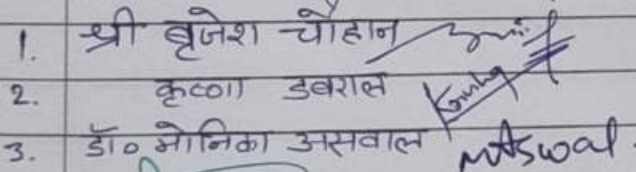 1. श्री बृजेश चौहान
2. कृष्णा डबराल
3. डॉ० मोनिका असवाल MAswal.